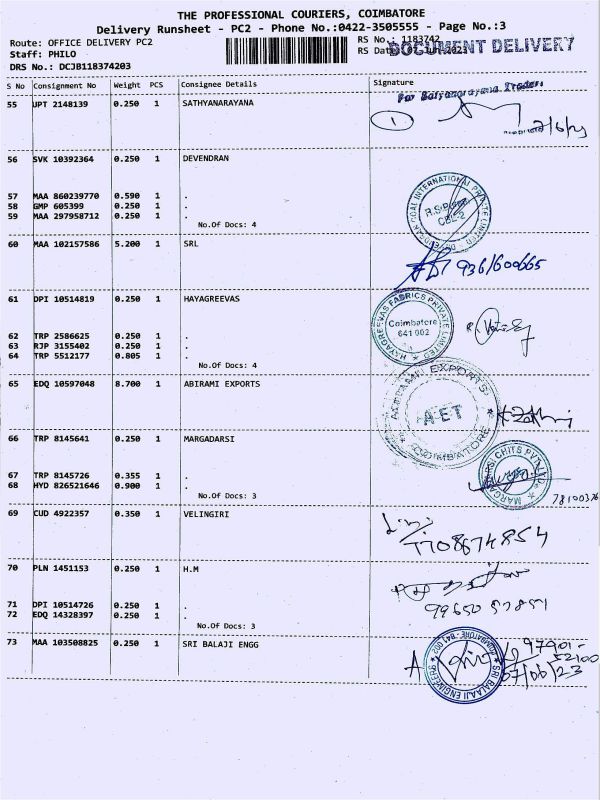 THE PROFESSIONAL COURIERS, COIMBATORE
Delivery Runsheet - PC2 - Phone No.:0422-3505555 - Page No.:3
Route: OFFICE DELIVERY PC2
RS No.: 1183742
Staff: PHILO
RS Date:
DOCUMENT DELIVERY
DRS No.: DCJB118374203
S No Consignment No Weight PCS Consignee Details Signature
55 JPT 2148139 0.250 1 SATHYANARAYANA
For Sathyanarayana Traders
1
56 SVK 10392364 0.250 1 DEVENDRAN
57 MAA 860239770 0.590 1 .
58 GMP 605399 0.250 1 .
59 MAA 297958712 0.250 1 .
No.Of Docs: 4
DEVENDRAN COAL INTERNATIONAL PRIVATE LIMITED
R.S.Puram
CBE-2
60 MAA 102157586 5.200 1 SRL
9361600665
61 DPI 10514819 0.250 1 HAYAGREEVAS
HAYAGREEVAS FABRICS PRIVATE LIMITED
Coimbatore
641 002
62 TRP 2586625 0.250 1 .
63 RJP 3155402 0.250 1 .
64 TRP 5512177 0.805 1 .
No.Of Docs: 4
65 EDQ 10597048 8.700 1 ABIRAMI EXPORTS
ABIRAAMI EXPORTS
AET
COIMBATORE
66 TRP 8145641 0.250 1 MARGADARSI
67 TRP 8145726 0.355 1 .
68 HYD 826521646 0.900 1 .
No.Of Docs: 3
MARGADARSI CHITS PVT LTD
69 CUD 4922357 0.350 1 VELINGIRI
7708674854
70 PLN 1451153 0.250 1 H.M
71 DPI 10514726 0.250 1 .
72 EDQ 14328397 0.250 1 .
No.Of Docs: 3
73 MAA 103508825 0.250 1 SRI BALAJI ENGG
SRI BALAAJI ENGINEERS
COIMBATORE - 641 002
97901-
52100
07/06/23